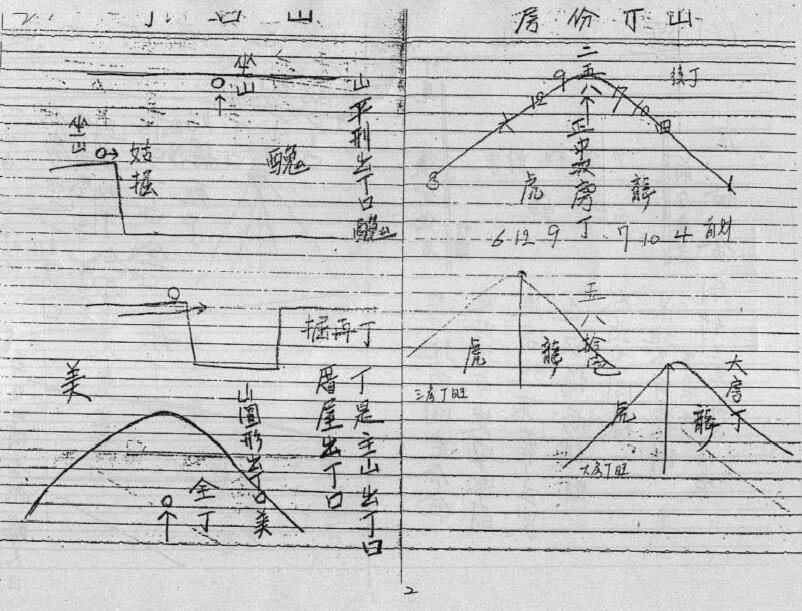 山丁份房
後丁
二五八
正中叔房丁
9
12
7
10
四
3
1
虎
龍
6 12 9
7 10 4
五八拾
虎
龍
三房丁旺
大房丁
虎
龍
大房丁旺
山口丁
坐山
山平形出丁口醜
醜
坐山
掘再丁
丁是主山出丁口
厝屋出丁口
美
山圓形出丁口美
全丁
2